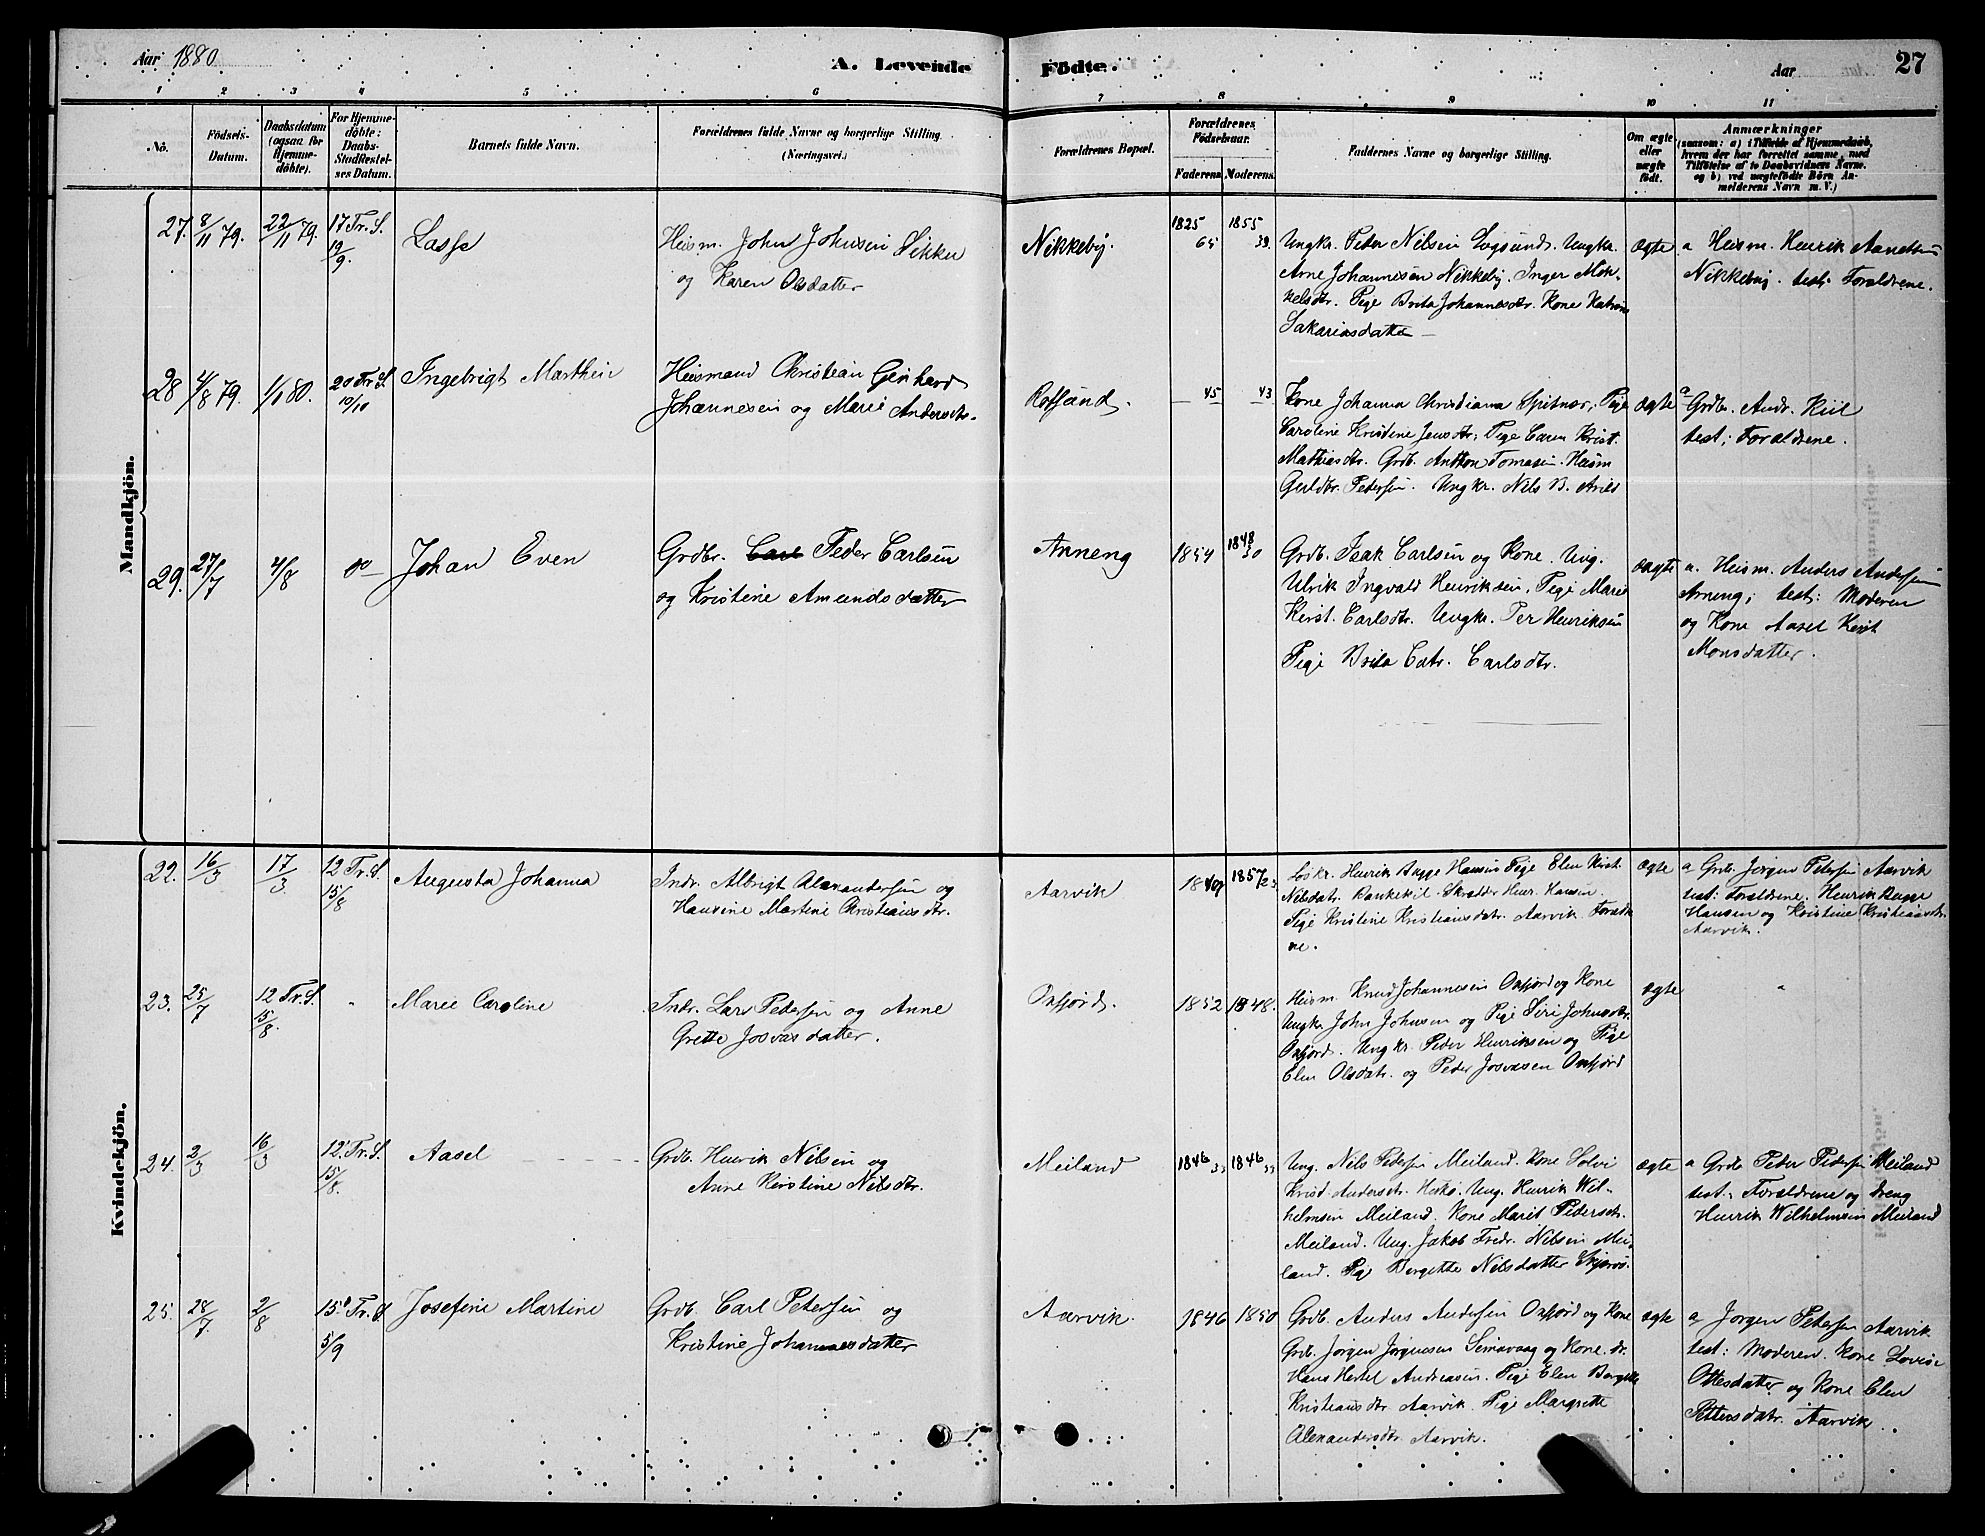 Aar 1880
A. Levende Fødte.
Aar
27
1 2 3 4 5 6 7 8 9 10 11
No.
Födsels-
Datum.
Daabsdatum
(ogsaa for
Hjemme-
döbte).
For Hjemme-
döbte:
Daabs-
Stadfæstel-
ses Datum.
Barnets fulde Navn.
Forældrenes fulde Navne og borgerlige Stilling
(Næringsvei.)
Forældrenes Bopæl.
Forældrenes
Födselsaar.
Faderens Moderens
Faddernes Navne og borgerlige Stilling.
Om ægte
eller
uægte
født.
Anmærkninger
(saasom: a) i Tilfælde af Hjemmedaab,
hvem der har forrettet samme, med
Tilföielse af to Daabsvidners Navne.
og b) ved uægtefödte Börn An-
melderens Navn m. V.)
Mandkjön.
27. 8/11 79. 22/11 79. 17 Tr. S.
19/9
Lasse
Heism. John Johnsen Sikku
og Karen Olsdatter
Nikkeby.
1825 1855
Ungkr. Peder Nilsen Logsund. Ungkr.
Arne Johannesen Nikkeby. Inger Mik-
kelsdtr. Pige Brita Johannesdtr. Kone
Sakariasdatter
ægte
a Heism. Henrik
Nikkeby. test: Forældrene.
28 4/8 79. 1/1 80. 20 Tr. S.
10/10
Ingebrigt Marthin
Heismand Christian Gerhard
Johannesen og Marie Andersdtr.
Rotsund.
45 43
Kone Johanna Christiana Spitnæs, Pige
Caroline Kristine Jensdtr; Pige Caren Krist.
Mathiasdtr. Grdb. Antthon Tomasen. Heism
Petersen. Ungkr. Nils B.
ægte
a Grdb. Andr. Kiil
test; Forældrene.
29. 27/7 4/8 do
Johan Even
Grdbr. Carl Peder Carlsen
og Kristine Amundsdatter
Anneng
1854 1848
30
Grdb. Isak Carlsen og Kone. Ung.
Ulrik Ingvald Henriksen. Pige Marie
Kirst. Carlsdtr. Ungkr. Per Henriksen
Pige Brita Catr. Carlsdtr.
ægte
a. Heism. Anders Andersen
Arneng; test: Moderen
og Kone Aasel Kirst
Monsdatter.
Kvindekjön.
22. 16/3 17/3 12 Tr. S.
15/8
Augusta Johanna
Indr. Albrigt Alexandersen og
Hansine Martine Christiansdtr.
Aarvik
1857
Henrik Bugge Hansen Pige Elen Kirst.
Nilsdatr. Skredder Henr. Hansen
Pige Kristine Kristiansdatr. Aarvik. Foræld
ne.
ægte
a Grdb. Jørgen Petersen Aarvik
test: Forældrene. Henrik Bugge
Hansen og Kristine Kristiansdtr.
Aarvik.
23. 25/7 12 Tr. S. "
15/8.
Marie Caroline
Indr. Lars Pedersen og Anne
Grette Josvasdatter.
Oxfjord.
1852 1848.
Heism. Knud Johannesen Oxfjord og Kone
Ungkr John Johnsen og Pige Siri Johnsdtr.
Oxfjord. Ungkr. Peder Henriksen og Pige
Elen Olsdatr. og Peder Josvasen Oxfjord
ægte
"
24. 2/3 16/3 12' Tr. S.
15/8.
Aasel
Grdb. Henrik Nilsen og
Anne Kirstine Nilsdtr.
Meiland
1846 33 1846 33
Ung. Nils Pedersen Meiland. Kone Solvi
Krist. Andersdtr. Ung. Henrik Wil-
helmsen Meiland. Kone Marit Pedersdtr.
Meiland. Ung. Jakob Fredr. Nilsen Mei-
land. Pig Bergitte Nilsdatter Skjervø.
ægte
a Grdb Peder Pedersen Meiland
test: Forældrene og dreng
Henrik Wilhelmsen Meiland
25. 28/7. 2/8 15' Tr. S.
5/9
Josefine Martine
Grdb. Carl Petersen og
Kristine Johannesdatter
Aarvik.
1846 1850
Grdb. Anders Andersen Oxfjord og Kone
Grdb. Jørgen Jørgensen Simavaag og Kone. dr.
Hans Hertel Andreasen. Pige Elen Bergitte
Kristiansdtr Aarvik. Pige Margrette
Alexandersdtr. Aarvik.
ægte
a Jørgen Petersen Aarvik
test: Moderen. Kone Lovise
Ottesdatter og Kone Elen
Pettersdatr. Aarvik.